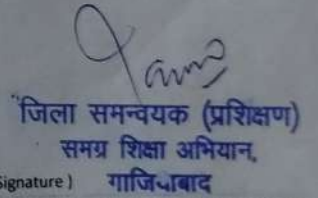 जिला समन्वयक (प्रशिक्षण)
समग्र शिक्षा अभियान,
Signature ) गाजियाबाद